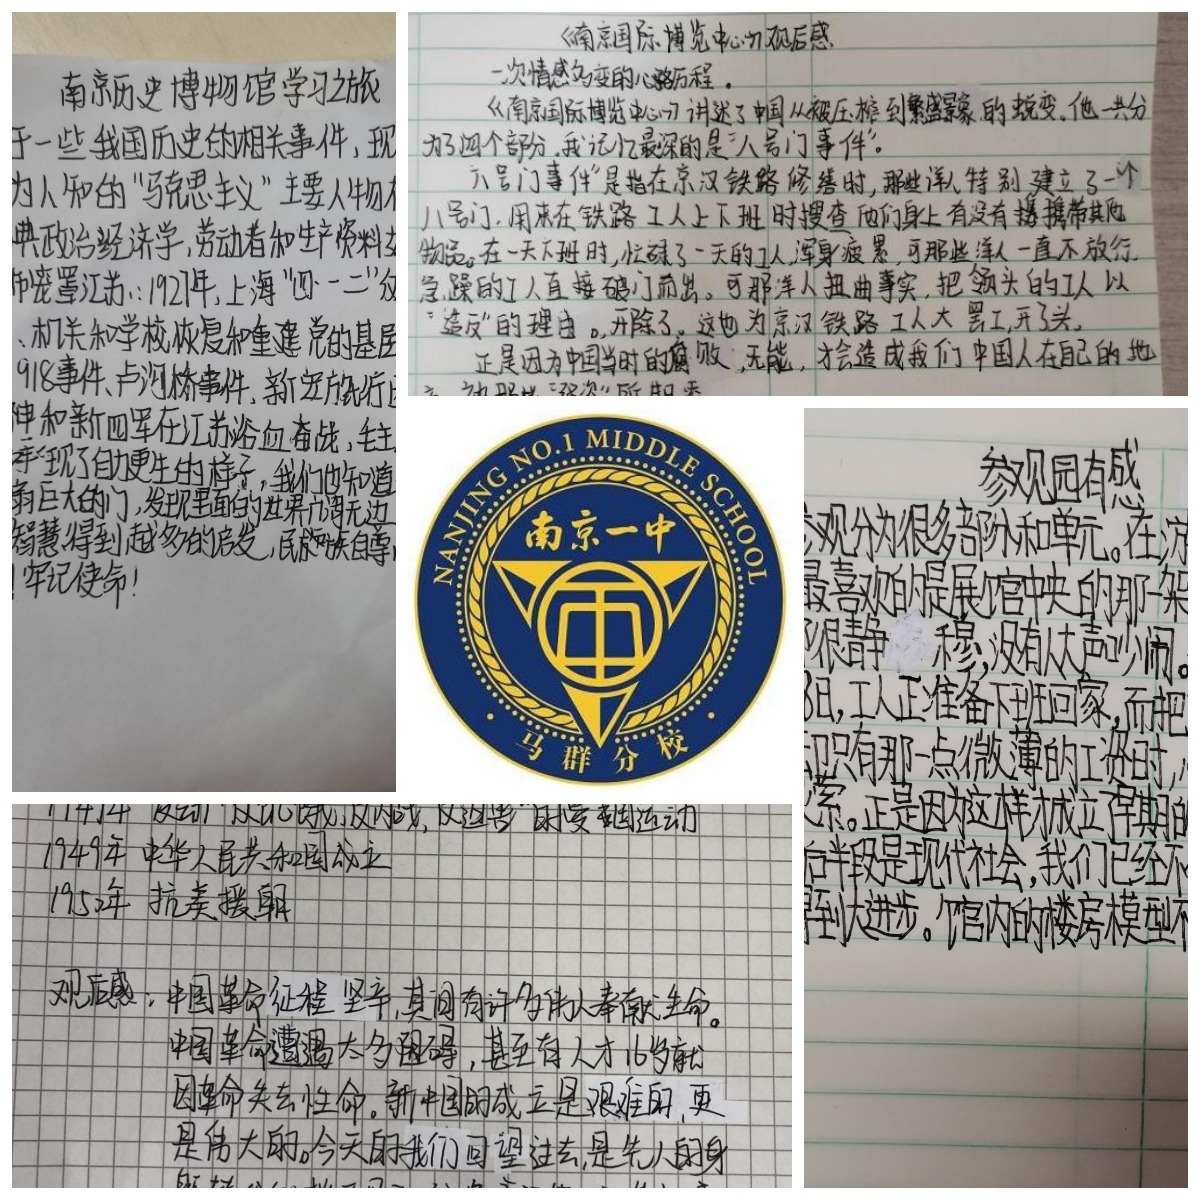 南京历史博物馆学习之旅
于一些我国历史的相关事件,现
为人知的"马克思主义"主要人物有
典政治经济学,劳动者和生产资料
笼罩江苏:1927年,上海"四·一二"
、机关和学校恢复和重建党的基层
918事件、卢沟桥事件、新安旅行团
和新四军在江苏浴血奋战,毛主
现了自力更生的样子,我们也知道
扇巨大的门,发现里面的世界广阔无边
智慧,得到越多的启发,民族自尊
!牢记使命!
《南京国际博览中心》观后感
一次情感多变的心路历程。
《南京国际博览中心》讲述了中国从被压榨到繁盛景象的蜕变。他一共分
为了四个部分。我记忆最深的是"八号门事件"。
"八号门事件"是指在京汉铁路修缮时,那些洋人特别建立了一个
八号门,用来在铁路工人上下班时搜查他们身上有没有携带其他
物品。在一天下班时,忙碌了一天的工人浑身疲累,可那些洋人一直不放行。
急躁的工人直接破门而出。可那洋人扭曲事实,把领头的工人以
"造反"的理由。开除了。这也为京汉铁路工人大罢工,开了头。
正是因为中国当时的腐败,无能,才会造成我们中国人在自己的地
NANJING NO.1 MIDDLE SCHOOL
南京一中
马群分校
参观园有感
参观分为很多部分和单元。在
最喜欢的是展馆中央的那一架
很静 穆,没有人大声吵闹。
日,工人正准备下班回家,而把
却只有那一点微薄的工资时,
索。正是因为这样才成立早期的
后半段是现代社会,我们已经不
得到大进步。馆内的楼房模型不
1949年 中华人民共和国成立
1950年 抗美援朝
观后感:中国革命征程坚辛,其间有许多伟人奉献生命。
中国革命遭遇太多困碍,甚至有人才16岁就
因革命失去性命。新中国的成立是艰难的,更
是伟大的。今天的我们回望过去,是先人的身